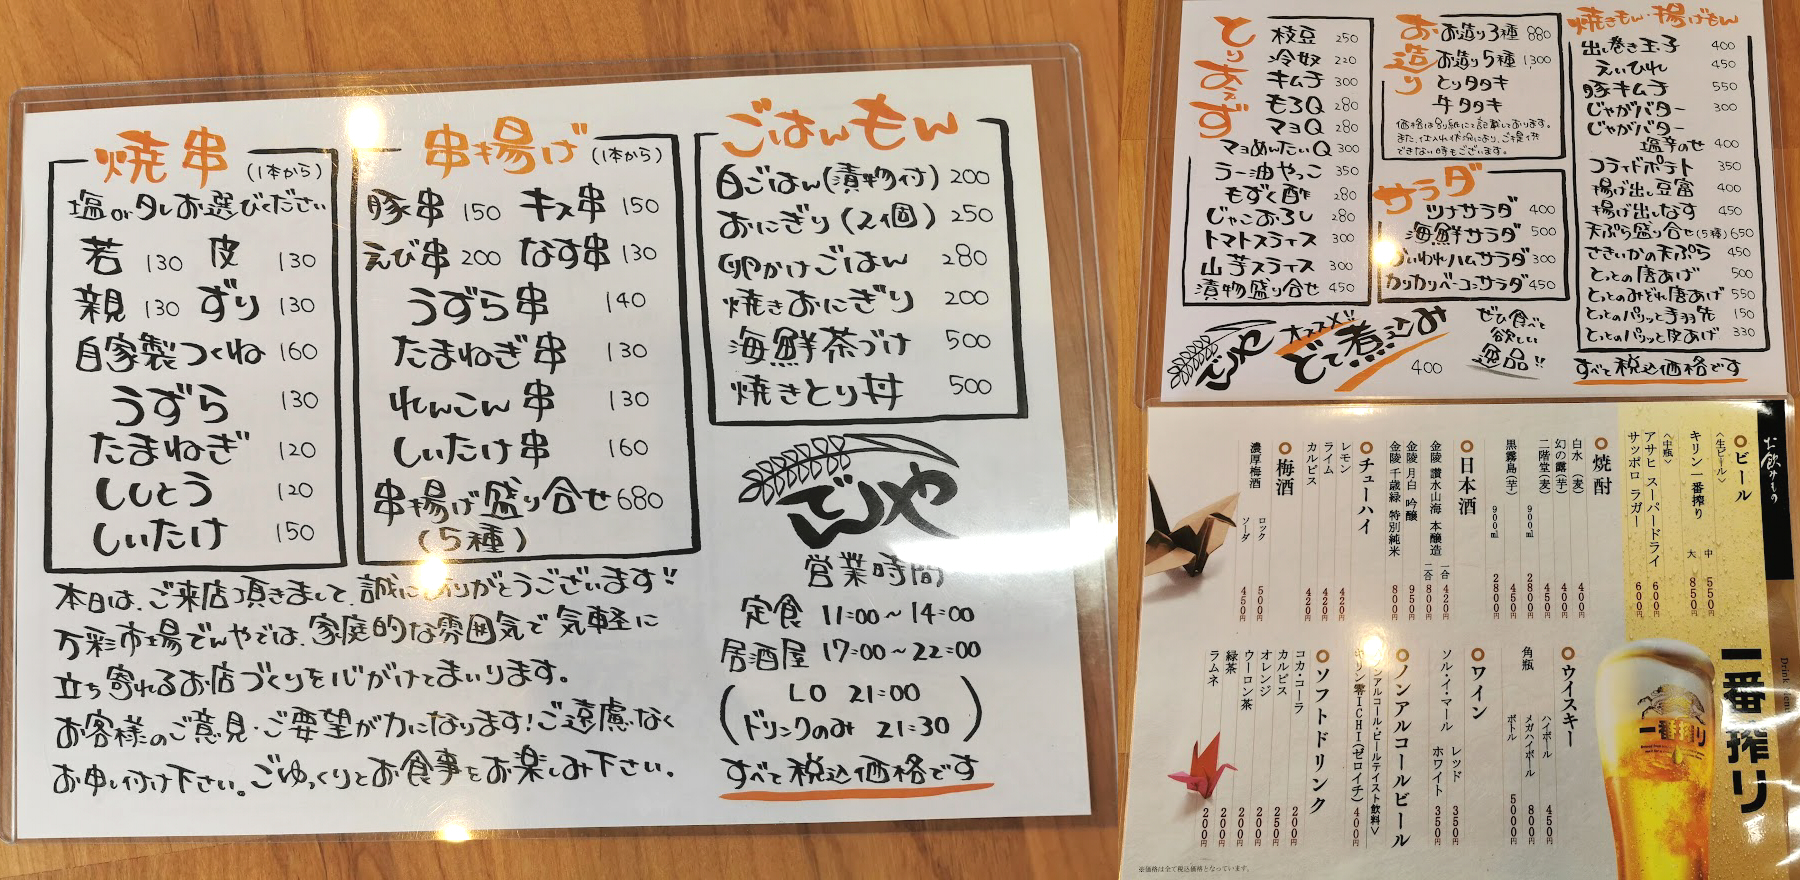 焼串(1本から)
塩orタレお選びください
若 130 皮 130
親 130 ずり 130
自家製つくね 160
うずら 130
たまねぎ 120
ししとう 120
しいたけ 150
串揚げ(1本から)
豚串 150 キス串 150
えび串 200 なす串 130
うずら串 140
たまねぎ串 130
れんこん串 130
しいたけ串 160
串揚げ盛り合せ 680
(5種)
ごはんもん
白ごはん(漬物付) 200
おにぎり(2個) 250
卵かけごはん 280
焼きおにぎり 200
海鮮茶づけ 500
焼きとり丼 500
でんや
営業時間
定食 11:00~14:00
居酒屋 17:00~22:00
(LO 21:00
ドリンクのみ 21:30)
すべて税込価格です
本日は、ご来店頂きまして、誠にありがとうございます!!
万彩市場でんやでは、家庭的な雰囲気で気軽に
立ち寄れるお店づくりを心がけてまいります。
お客様のご意見・ご要望が力になります!ご遠慮なく
お申し付け下さい。ごゆっくりとお食事をお楽しみ下さい。
とりあえず
枝豆 250
冷奴 220
キムチ 300
もろQ 280
マヨQ 280
マヨめんたいQ 300
ラー油やっこ 350
もずく酢 280
じゃこおろし 280
トマトスライス 300
山芋スライス 300
漬物盛り合せ 450
お造り
お造り3種 880
お造り5種 1300
とりタタキ
牛タタキ
価格は別紙にて記載しております。
また、仕入れ状況により、ご提供
できない時もございます。
サラダ
ツナサラダ 400
海鮮サラダ 500
かいわれハムサラダ 300
カリカリベーコンサラダ 450
焼きもん・揚げもん
出し巻き玉子 400
えいひれ 450
豚キムチ 550
じゃがバター 300
じゃがバター
塩辛のせ 400
フライドポテト 350
揚げ出し豆富 400
揚げ出しなす 450
天ぷら盛り合せ(5種) 650
さきいかの天ぷら 450
とっとの唐あげ 500
とっとのみぞれ唐あげ 550
とっとのパリッと手羽先 150
とっとのパリッと皮あげ 330
でんや
オススメ!!
どて煮込み
400
ぜひ食べて
欲しい
逸品!!
すべて税込価格です
お飲みもの
Drink Menu
一番搾り
ビール
〈生ビール〉
キリン一番搾り 中 550円
大 850円
〈中瓶〉
アサヒ スーパードライ 600円
サッポロ ラガー 600円
焼酎
白水(麦) 400円
幻の露(芋) 400円
二階堂(麦) 450円
900ml 2800円
黒霧島(芋) 450円
900ml 2800円
日本酒
金陵 讃水山海 本醸造 一合 420円
二合 800円
金陵 月白 吟醸 950円
金陵 千歳緑 特別純米 800円
チューハイ
レモン 420円
ライム 420円
カルピス 420円
梅酒
濃厚梅酒 ロック 500円
ソーダ 450円
ウイスキー
角瓶 ハイボール 450円
メガハイボール 800円
ボトル 5000円
ワイン
ソル・イ・マール レッド 350円
ホワイト 350円
ノンアルコールビール
ンアルコール・ビールテイスト飲料〉
キリン零ICHI(ゼロイチ) 400円
ソフトドリンク
コカ・コーラ 200円
カルピス 250円
オレンジ 200円
ウーロン茶 200円
緑茶 200円
ラムネ 200円
一番搾り
※価格は全て税込価格となっています。